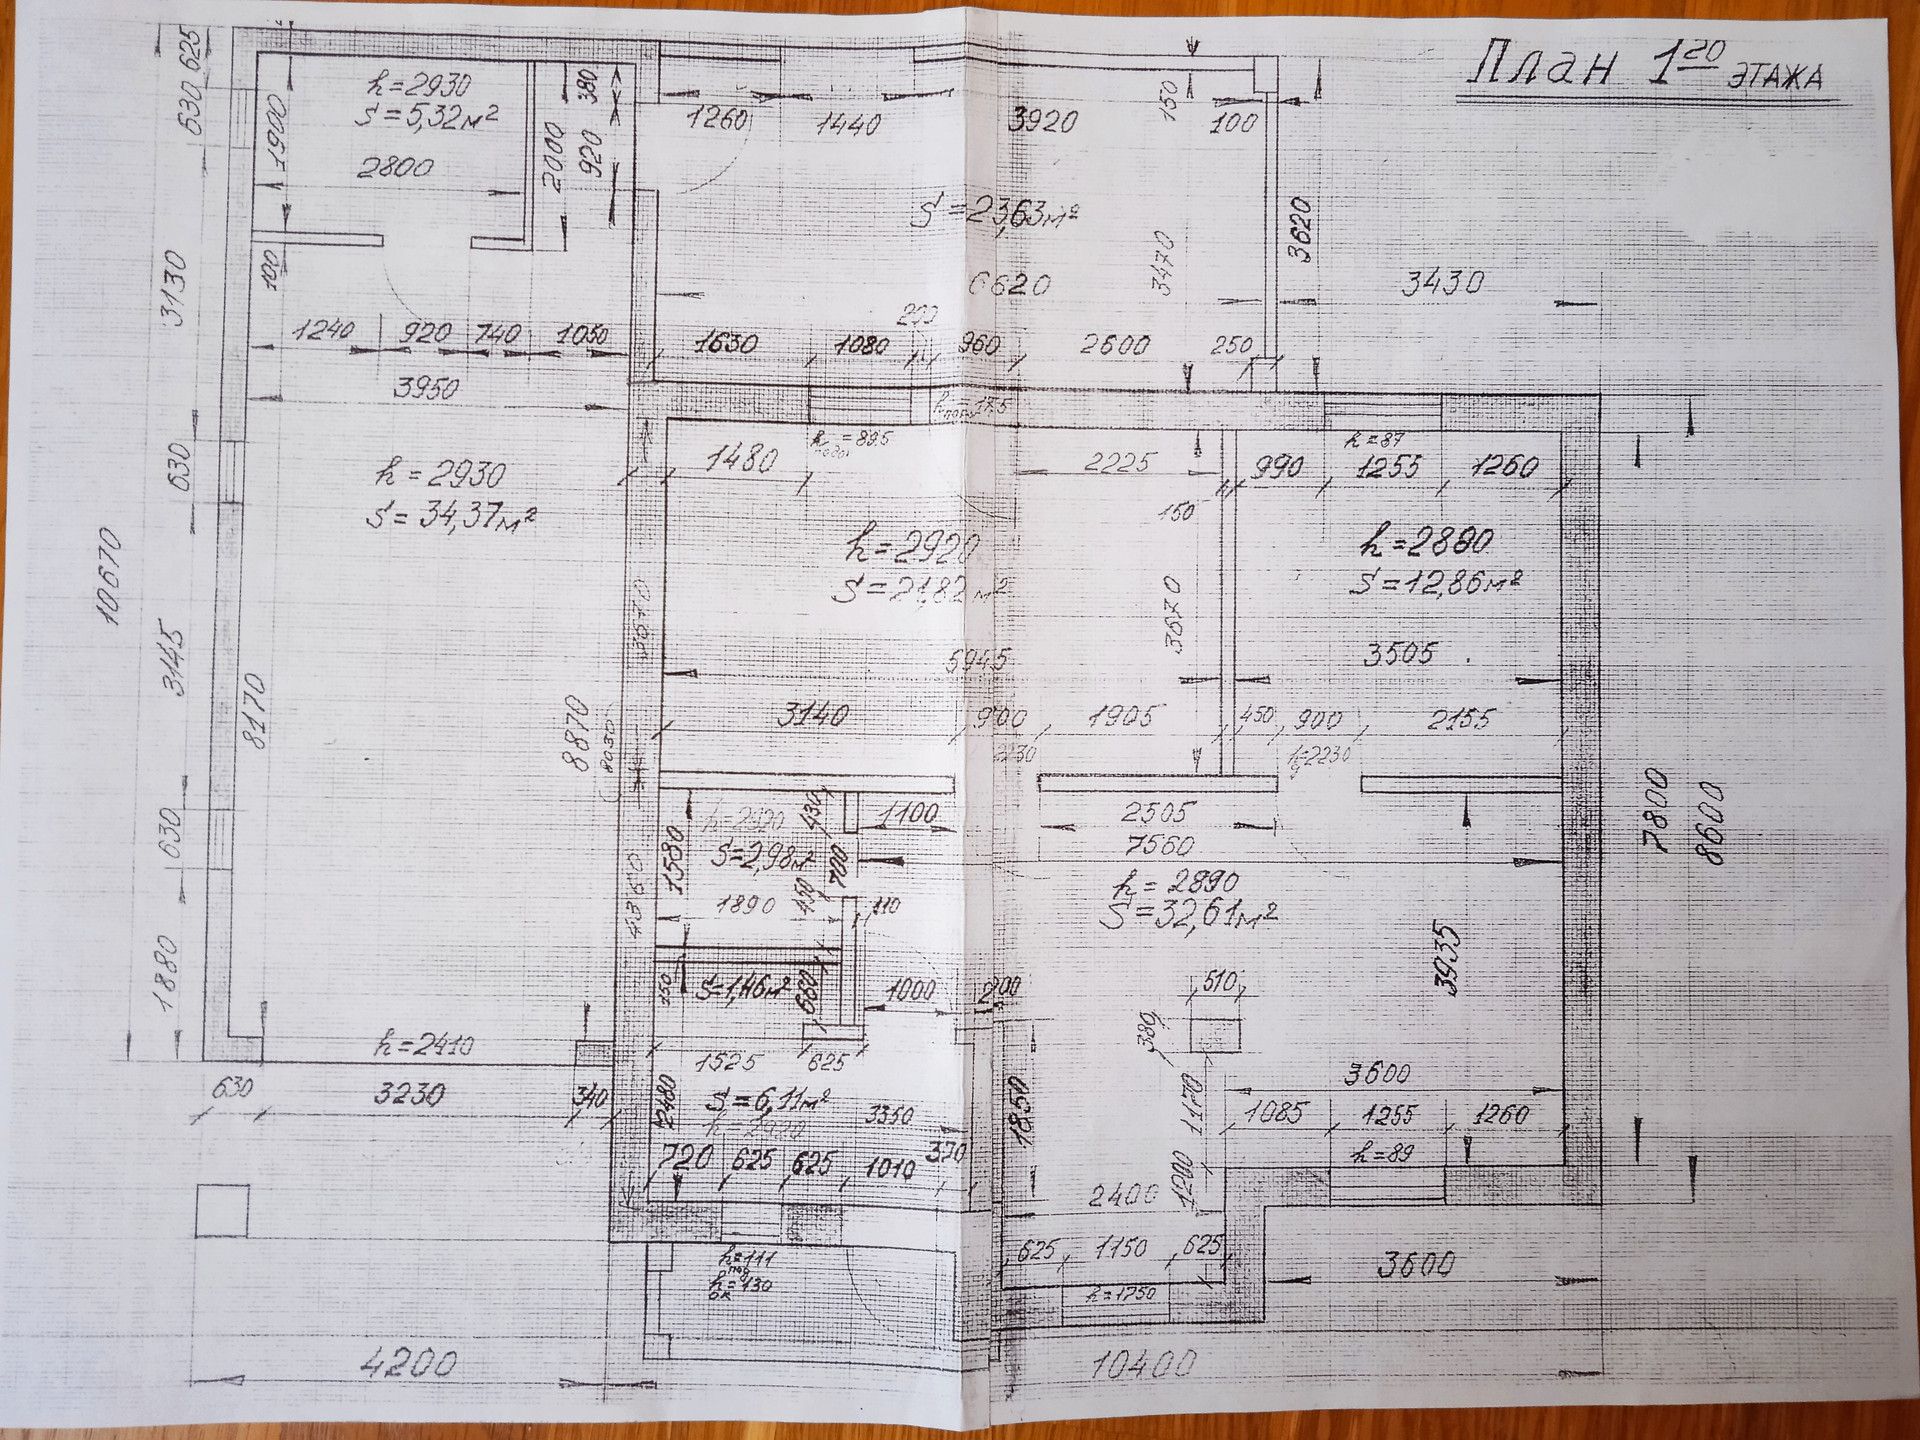 План 1го ЭТАЖА
625
630
3130
630
3145
630
1880
10670
h=2930
S=5,32м²
2800
1900
100
2000
380
920
1240
920
740
1050
3950
1260
1440
3920
150
100
S=23,63м²
6620
3470
3620
3430
200
1630
1080
960
2600
250
h=2930
S=34,37м²
8170
8870
8030
3670
4350
1480
2225
150
h=2920
S=21,82м²
5945
3670
3140
900
1905
2230
h=87
990
1255
1260
h=2880
S=12,86м²
3505
450
900
2155
h=2230
7800
8600
S=2,98м²
1580
1890
430
700
450
110
1100
2505
7560
h=2890
S=32,61м²
3935
150
S=1,46м²
680
1000
200
510
380
1525
625
h=2410
630
3230
340
2480
S=6,11м²
h=2920
3350
720
625
625
1010
370
1850
1170
1200
3600
1085
1255
1260
h=89
2400
625
1150
625
h=1750
3600
h=111
под
h=130
ок
4200
10400